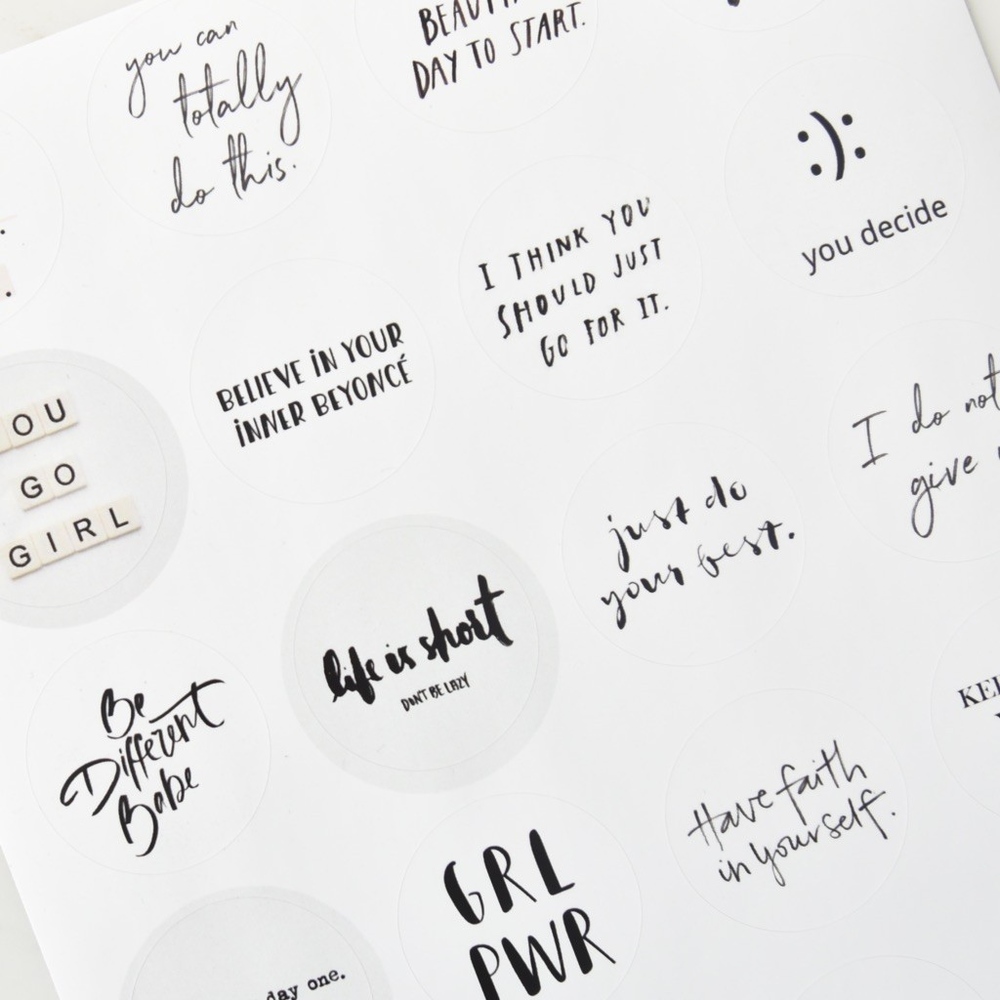 you can
totally
do this.
DAY TO START.
:):
you decide
I THINK YOU
SHOULD JUST
GO FOR IT.
BELIEVE iN YOUR
iNNER BEYONCÉ
OU
GO
GIRL
I do not
give
just do
your best.
life is short
DON'T BE LAZY
Be
Different
Babe
Have faith
in yourself.
GRL
PWR
day one.